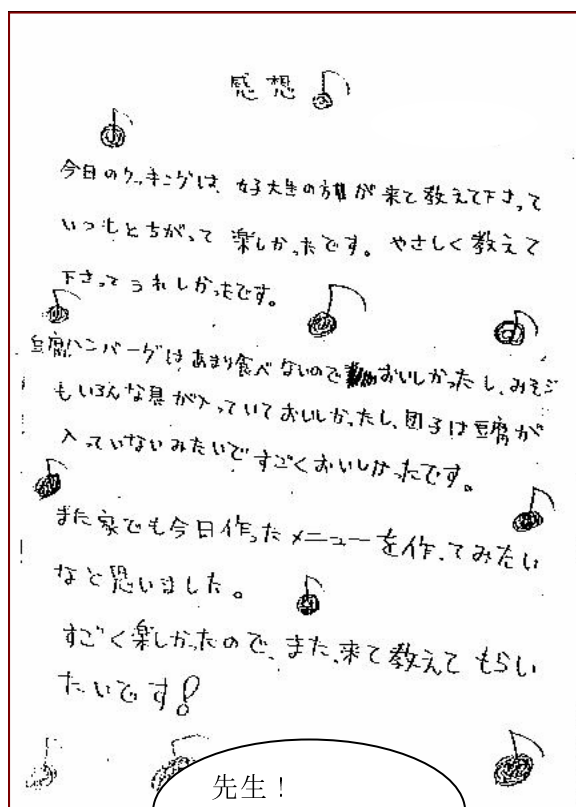 感想
今日のクッキングは、女子大生の方が来て教えて下さって
いつもとちがって楽しかったです。やさしく教えて
下さってうれしかったです。
豆腐ハンバーグはあまり食べないのでおいしかったし、みそ汁
もいろんな具が入っていておいしかったし、団子は豆腐が
入っていないみたいですごくおいしかったです。
また家でも今日作ったメニューを作ってみたい
なと思いました。
すごく楽しかったので、また、来て教えてもらい
たいです!
先生!